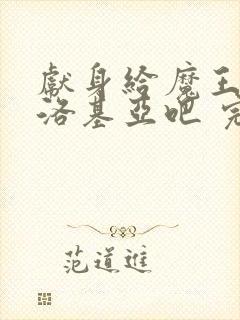 獻身給魔王
洛基亞吧 完
范道進